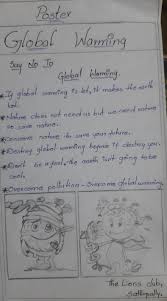 Poster
Global Warming
Say No To
Global Warming.
* If global warming is let, it makes the earth
hot.
* Nature does not need us but we need nature
so save nature.
* Conserve nature to save your future.
* Destroy global warming before it destroy you.
* Don't be a fool, the earth isn't going to be
cool.
* Overcome pollution - Overcome global warming
The Lions club,
Sattenpally.